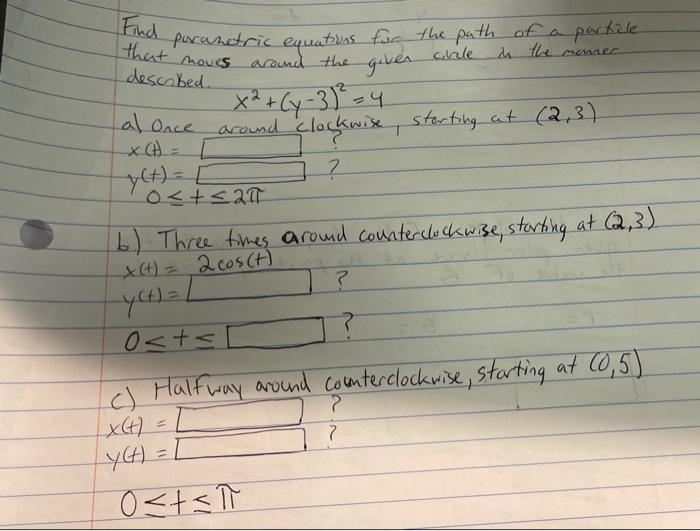 Find parametric equations for the path of a particle
that moves around the given circle in the manner
described.
x² + (y-3)² = 4
a) Once around clockwise, starting at (2,3)
x(t) = ?
y(t) = ?
0 ≤ t ≤ 2π
b) Three times around counterclockwise, starting at (2,3)
x(t) = 2cos(t)
y(t) = ?
0 ≤ t ≤ ?
c) Halfway around counterclockwise, starting at (0,5)
x(t) = ?
y(t) = ?
0 ≤ t ≤ π